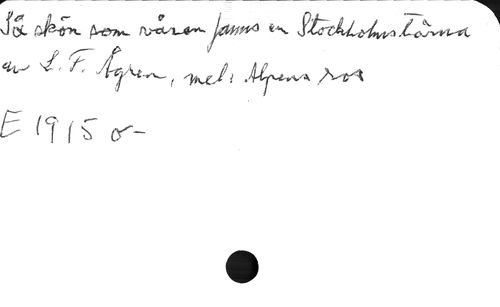 Så skön som våren fanns en Stockholmstärna
av L. F. Ågren, mel: Alpens ros
E 1915 o-